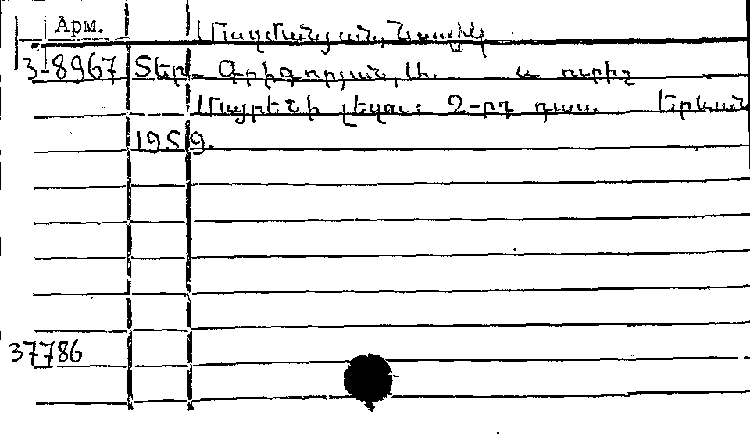 Арм.
3-8967 Տեր-Գրիգորյան, և ուրիշ
Մայրենի լեզու: 2-րդ դաս. Երևան
1959.
37786